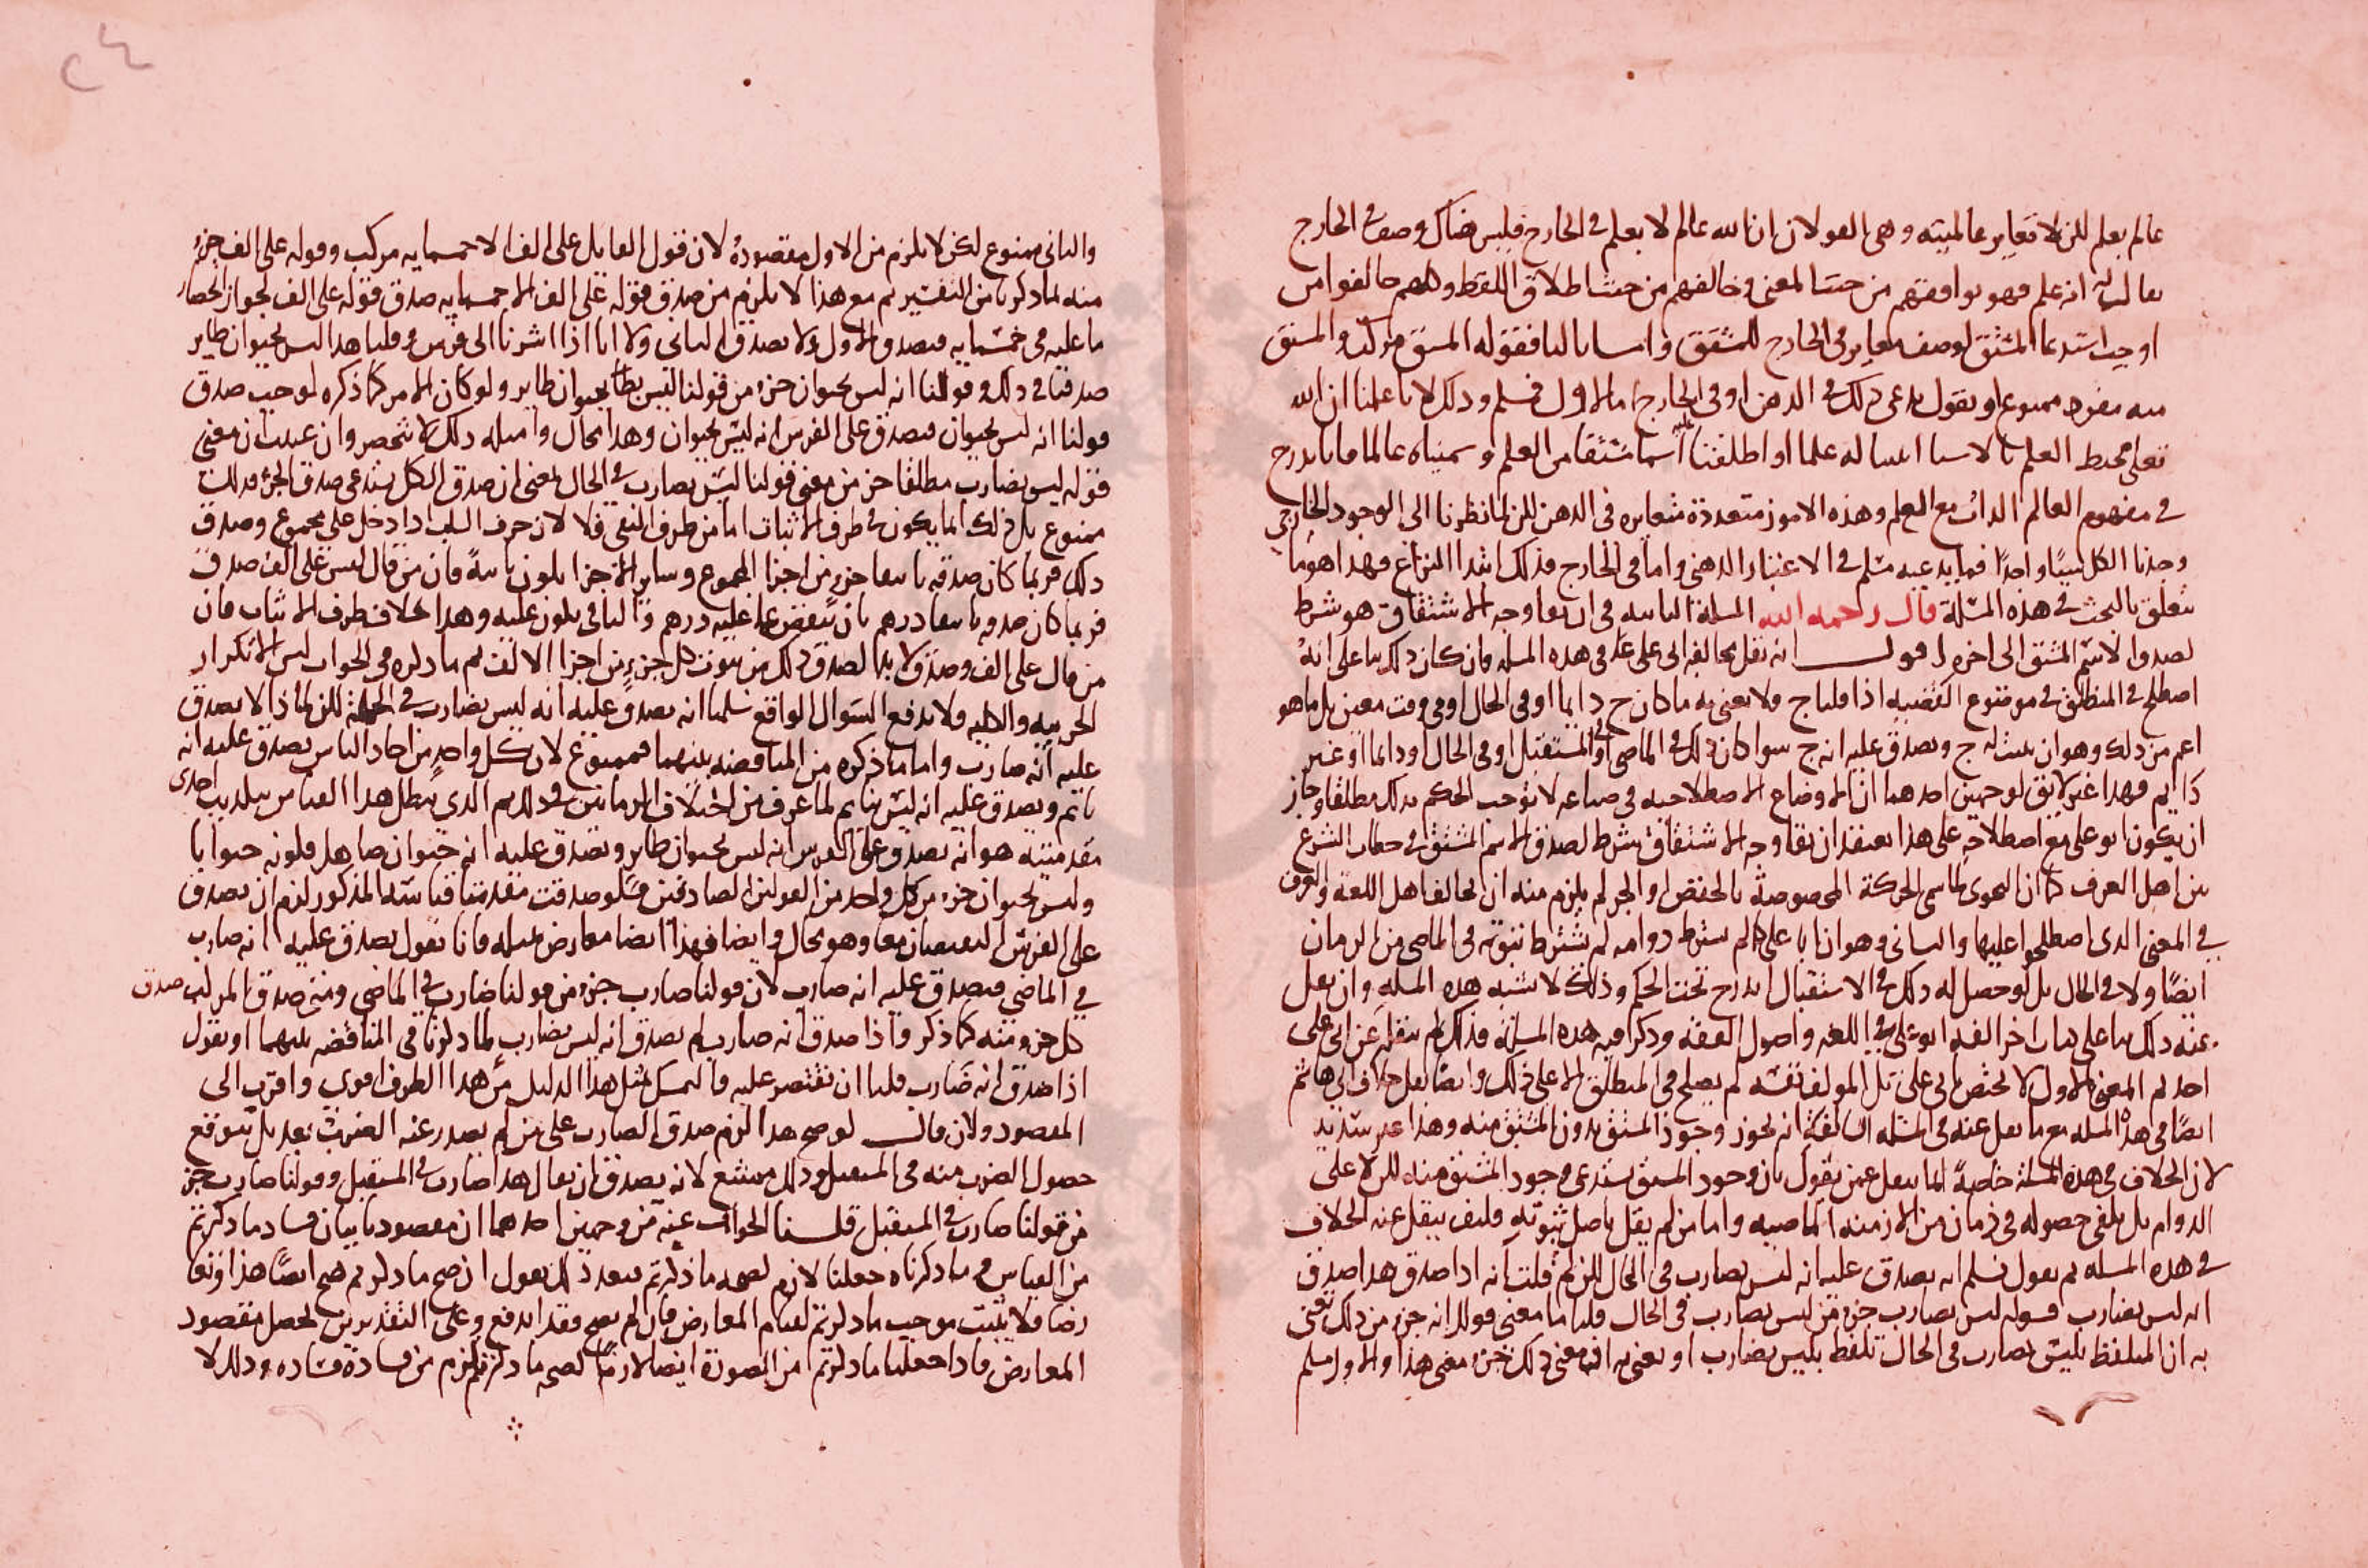 عالم بعلم لكن لا تغاير عالميته وهى القولان ان الله عالم لا بعلم فى الخارج فليس هناك وصف فى الخارج
يقال له انه علم فهو يوافقهم من حيث المعنى وخالفهم من حيث اطلاق اللفظ وكلهم خالفوا من
اوجب استدعا المشتق لوصف مغاير فى الخارج للمشتق واما ثانيا فقوله المشتق مركب والمشتق
منه مفرد ممنوع او نقول يدعى ذلك فى الذهن او فى الخارج اما الاول فمسلم وذلك لانا علمنا ان الله
تعلى محيط العلم بالاشيا اثبتنا له علما واطلقنا عليه اسما مشتقا من العلم وسميناه عالما فاندرج
فى مفهوم العالم الذات مع العلم وهذه الامور متعددة متغايره فى الذهن لكن لما نظرنا الى الوجود الخارجى
وجدنا الكل شيئا واحدا فما يدعيه مسلم فى الاعتبار الذهنى واما فى الخارج فذلك ابتدا النزاع فهذا هو ما
يتعلق بالبحث فى هذه المسئلة قال رحمه الله المسلة الثانيه فى ان بقا وجه الاشتقاق هو شرط
لصدق الاسم المشتق الى اخره اقول انه نقل مخالفة ابى على عنه فى هذه المسله فان كان ذلك بنا على انه
اصطلح فى المنطق فى موضوع القضيه اذا قلنا ج فلا نعنى به ما كان ج دايما او فى الحال او فى وقت معين بل ما هو
اعم من ذلك وهو ان يثبت له ج ويصدق عليه انه ج سوا كان ذلك فى الماضى او فى المستقبل او فى الحال او دايما او غير
دايم فهذا غير لايق لوجهين احدهما ان الاوضاع الاصطلاحيه فى صناعه لا توجب الحكم بذلك مطلقا وجاز
ان يكون ابو على مع اصطلاحه على هذا يعتقد ان بقا وجه الاشتقاق شرط لصدق الاسم المشتق فى خطاب الشرع
بين اهل العرف كما ان النحوى لما سمى الحركة المخصوصة بالخفض او الجر لم يلزم منه ان يخالف اهل اللغة والعرف
فى المعنى الذى اصطلحوا عليها والثانى وهو ان ابا على كما لم يشترط دوامه لم يشترط ثبوته فى الماضى من الزمان
ايضا ولا فى الحال بل لو حصل له ذلك فى الاستقبال اندرج تحت الحكم وذلك لا يشبه هذه المسله وان نقل
عنه ذلك بنا على كتاب اخر الفه ابو على فى اللغه واصول الفقه وذكر فيه هذه المسئلة فذلك لم ينقله عن ابى على
احد ثم المعنى الاول لا يختص بابى على بل المولف نفسه لم يصطلح فى المنطق الا على ذلك وايضا نقل خلاف ابى هاشم
ايضا فى هذه المسله مع ما نقل عنه فى المسله السابقة انه يجوز وجود المشتق بدون المشتق منه وهذا غير سديد
لان الخلاف فى هذه المسئلة خاصة انما ينقل عمن يقول بان وجود المشتق يستدعى وجود المشتق منه لكن لا على
الدوام بل يكفى حصوله فى زمان من الازمنه الماضيه واما من لم يقل باصل ثبوته فكيف ينقل عنه الخلاف
فى هذه المسله ثم نقول نسلم انه يصدق عليه انه ليس بضارب فى الحال لكن لم قلت انه اذا صدق هذا صدق
انه ليس بضارب قوله ليس بضارب جزء من ليس بضارب فى الحال قلنا ما معنى قولك انه جزء من ذلك تعنى
به ان المتلفظ بليس بضارب فى الحال تلفظ بليس بضارب او تعنى به ان معنى ذلك جزء معنى هذا والاول مسلم
والثانى ممنوع لكن لا يلزم من الاول مقصوده لان قول القايل على الف الا خمسمايه مركب وقوله على الف جزء
منه لما ذكرنا من التفسير ثم مع هذا لا يلزم من صدق قوله على الف الا خمسمايه صدق قوله على الف لجواز انحصار
ما عليه فى خمسمايه فيصدق الاول ولا يصدق الثانى ولانا اذا اشرنا الى فرس وقلنا هذا ليس بحيوان طاير
صدقنا فى ذلك وقولنا انه ليس بحيوان جزء من قولنا ليس بحيوان طاير ولو كان الامر كما ذكره لوجب صدق
قولنا انه ليس بحيوان فيصدق على الفرس انه ليس بحيوان وهذا محال وامثله ذلك لا تنحصر وان عنيت ان معنى
قوله ليس بضارب مطلقا جزء من معنى قولنا ليس بضارب فى الحال بمعنى ان صدق الكل يستدعى صدق الجزء فذلك
ممنوع بل ذلك انما يكون فى طرف الاثبات اما من طرف النفى فلا لان حرف السلب اذا دخل على مجموع وصدق
ذلك فربما كان صدقه بانتفا جزء من اجزا المجموع وساير الاجزا يكون ثابتة فان من قال ليس على الف صدق
فربما كان صدقه بانتفا درهم بان ينقص عما عليه درهم والباقى يكون عليه وهذا بخلاف طرف الاثبات فان
من قال على الف وصدق لا بد لصدق ذلك من ثبوت كل جزء من اجزا الالف ثم ما ذكره فى الجواب ليس الا تكرار
الجزييه والكليه ولا يدفع السوال الواقع سلمنا انه يصدق عليه انه ليس بضارب فى الجملة لكن لماذا لا يصدق
عليه انه ضارب واما ما ذكره من المناقضه بينهما فممنوع لان كل واحد من احاد الناس يصدق عليه انه
نايم ويصدق عليه انه ليس بنايم لما عرف من اختلاف الزمانين فى ذلك ثم الذى يبطل هذا القياس بتكذيب احدى
مقدمتيه هو انه يصدق على الفرس انه ليس بحيوان طاير ويصدق عليه انه حيوان صاهل فكونه حيوانا
وليس بحيوان جزء من كل واحد من القولين الصادقين فلو صدقت مقدمتا قياسه المذكور لزم ان يصدق
على الفرس النقيضان معا وهو محال وايضا فهذا ايضا معارض بمثله فانا نقول يصدق عليه انه ضارب
فى الماضى فيصدق عليه انه ضارب لان قولنا ضارب جزء من قولنا ضارب فى الماضى ومتى صدق المركب صدق
كل جزء منه كما ذكر واذا صدق انه ضارب لم يصدق انه ليس بضارب لما ذكرنا فى المناقضه بينهما او نقول
اذا صدق انه ضارب قلنا ان نقتصر عليه والتمسك بمثل هذا الدليل من هذا الطرف اقوى واقرب الى
المقصود ولان قال لو صح هذا لزم صدق الضارب على من لم يصدر عنه الضرب بعد بل يتوقع
حصول الضرب منه فى المستقبل وذلك ممتنع لانه يصدق ان يقال هذا ضارب فى المستقبل وقولنا ضارب جزء
من قولنا ضارب فى المستقبل قلنا الجواب عنه من وجهين احدهما ان مقصودنا بيان فساد ما ذكرتم
من القياس فى ما ذكرناه جعلنا لازم لصحه ما ذكرتم فبعد ذلك نقول ان صح ما ذكرتم صح ايضا هذا وتعا
رضا فلا يثبت موجب ما ذكرتم لقيام المعارض فان لم يصح فقد اندفع وعلى التقديرين يحصل مقصود
المعارض فاذا جعلنا ما ذكرتم من الصورة ايضا لازما لصحه ما ذكرتم لزم من فساده فساده وذلك لا
٢٤